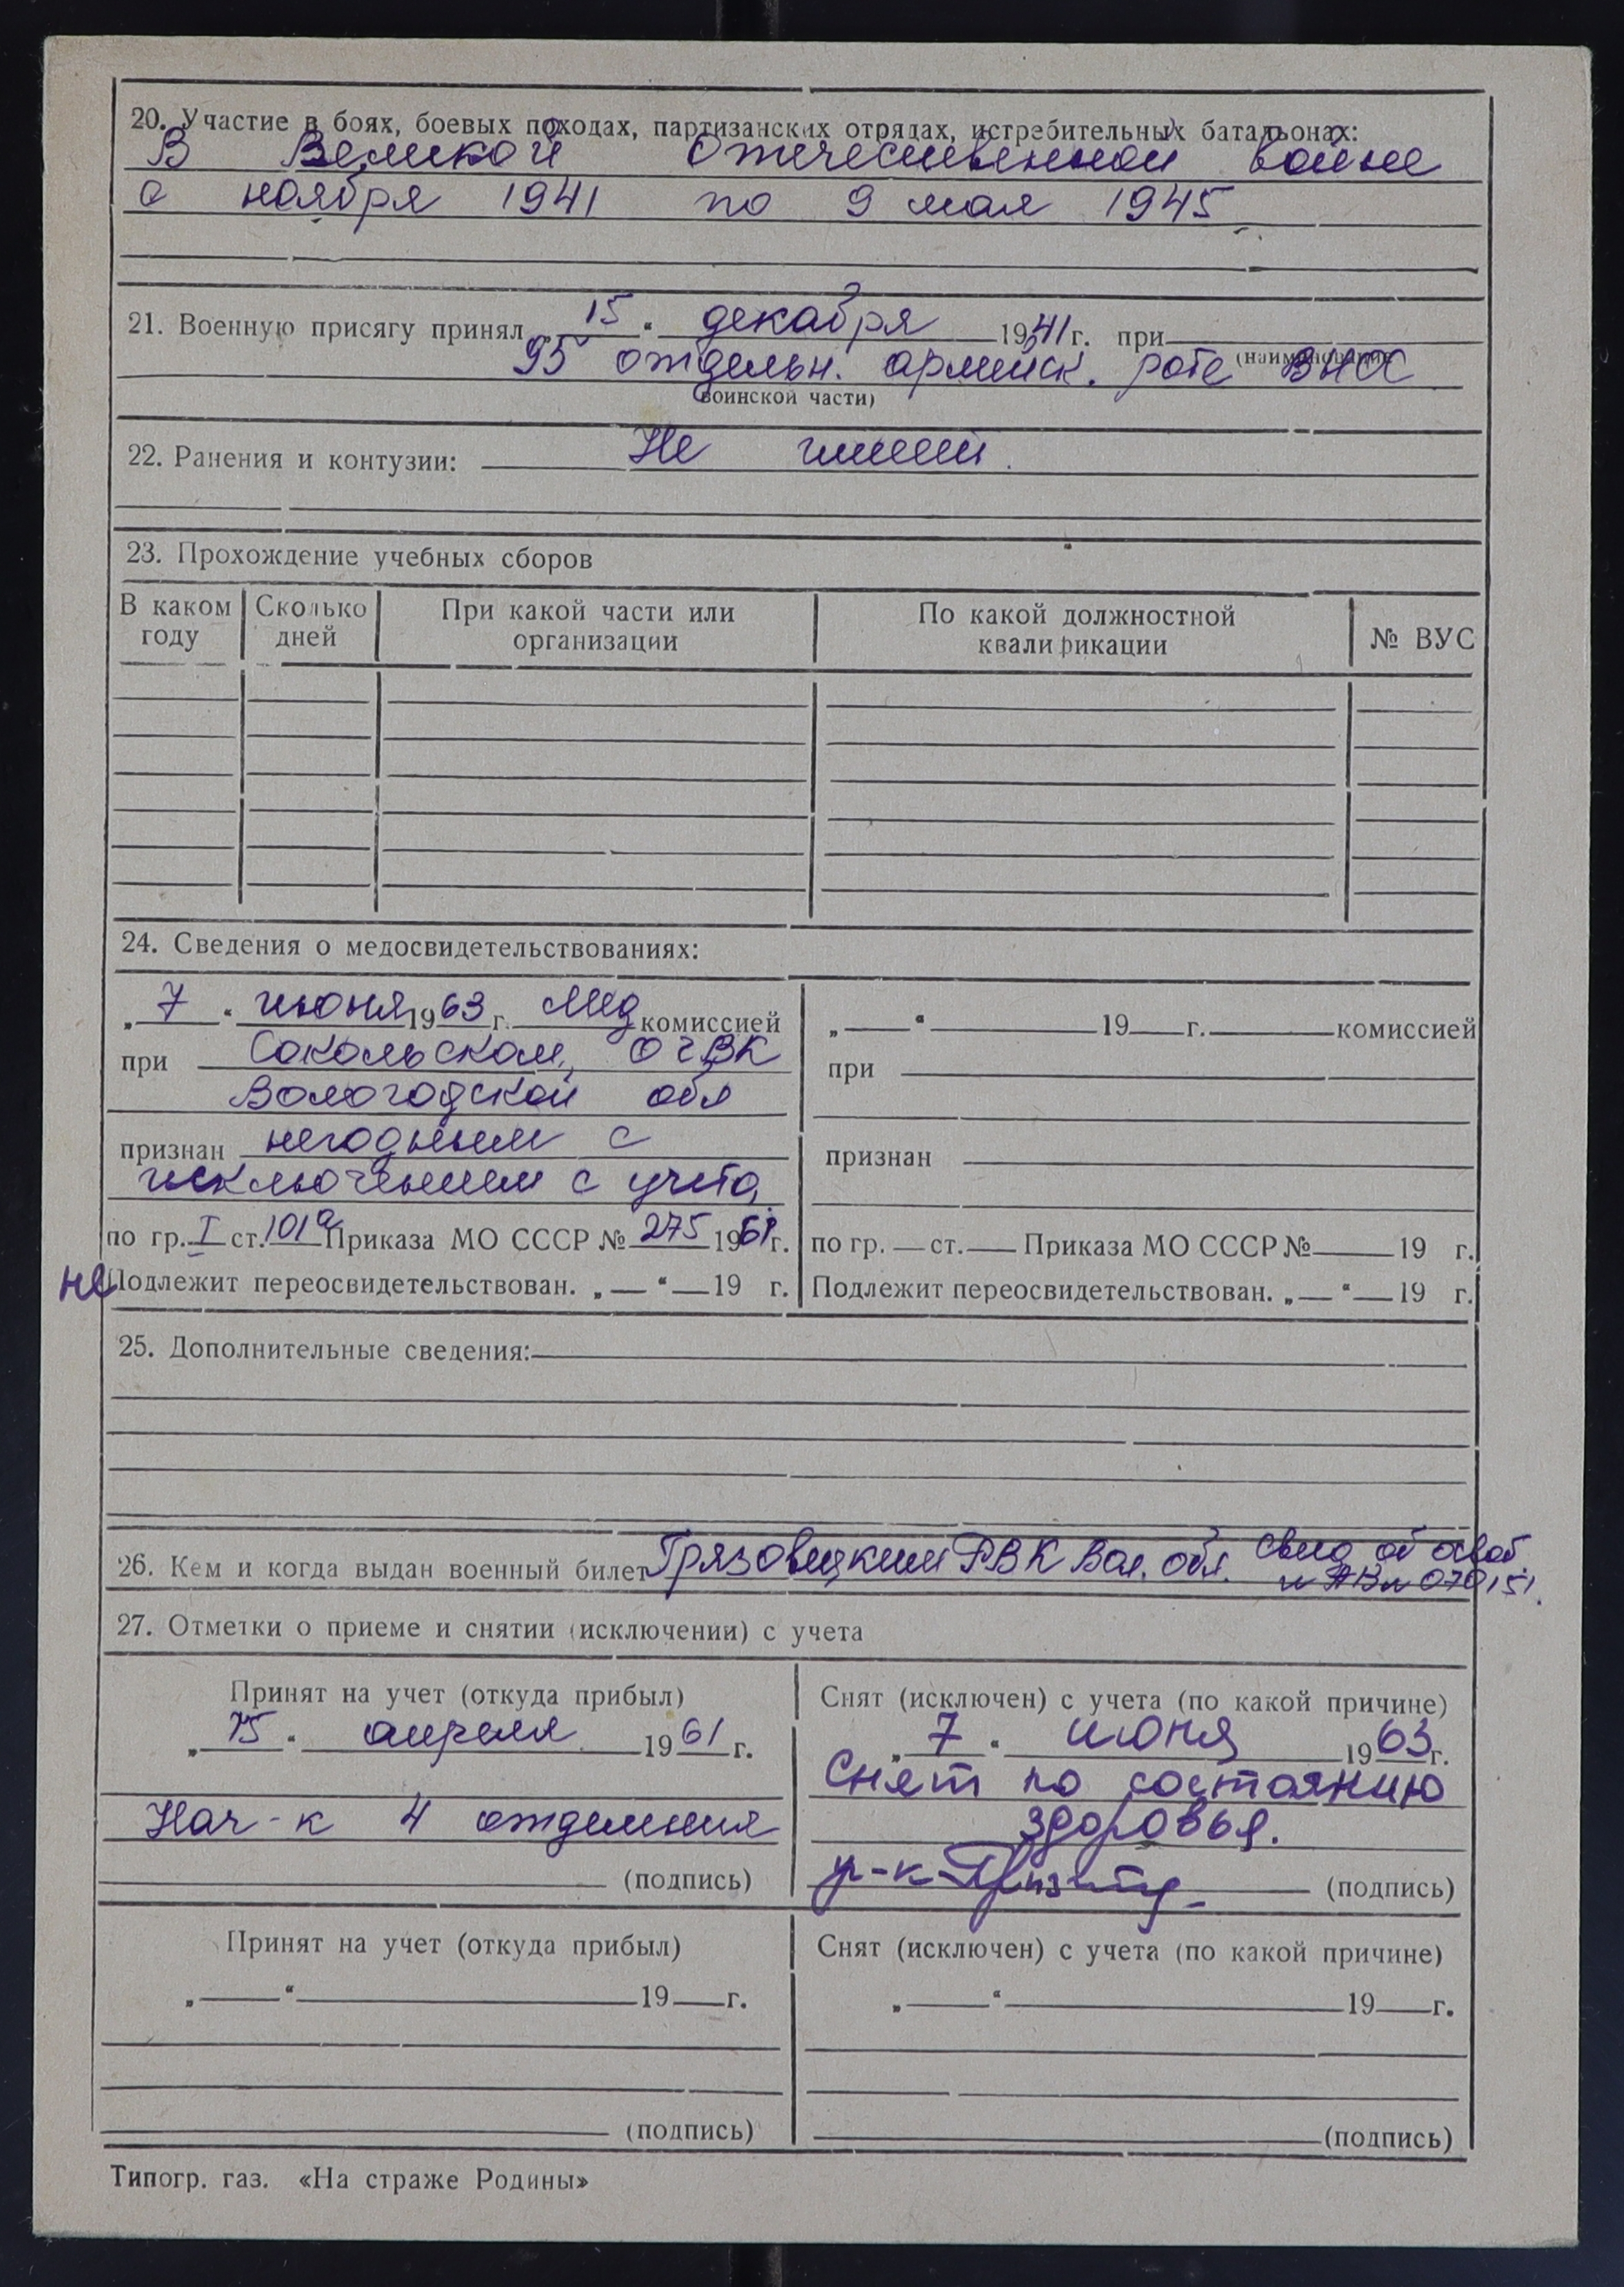 20. Участие в боях, боевых походах, партизанских отрядах, истребительных батальонах:
В Великой Отечественной войне
с ноября 1941 по 9 мая 1945
21. Военную присягу принял „15“ декабря 1941 г. при
(наименование
95 отдельн. армейск. роте ВНОС
воинской части)
22. Ранения и контузии: Не имеет.
23. Прохождение учебных сборов
В каком году Сколько дней При какой части или организации По какой должностной квалификации № ВУС
24. Сведения о медосвидетельствованиях:
„7“ июня 1963 г. Мед комиссией
при Сокольском ОГВК
Вологодской обл
признан негодным с
исключением с учета,
по гр. I ст. 101а Приказа МО СССР № 275 1961 г.
не Подлежит переосвидетельствован. „ “ 19 г.
„ “ 19 г. комиссией
при
признан
по гр. ст. Приказа МО СССР № 19 г.
Подлежит переосвидетельствован. „ “ 19 г.
25. Дополнительные сведения:
26. Кем и когда выдан военный билет Грязовецким РВК Вол. обл. Свид об освоб.
070151.
27. Отметки о приеме и снятии (исключении) с учета
Принят на учет (откуда прибыл)
„15“ апреля 1961 г.
Нач-к 4 отделения
(подпись)
Снят (исключен) с учета (по какой причине)
„7“ июня 1963 г.
Снят по состоянию
здоровья.
(подпись)
Принят на учет (откуда прибыл)
„ “ 19 г.
(подпись)
Снят (исключен) с учета (по какой причине)
„ “ 19 г.
(подпись)
Типогр. газ. «На страже Родины»